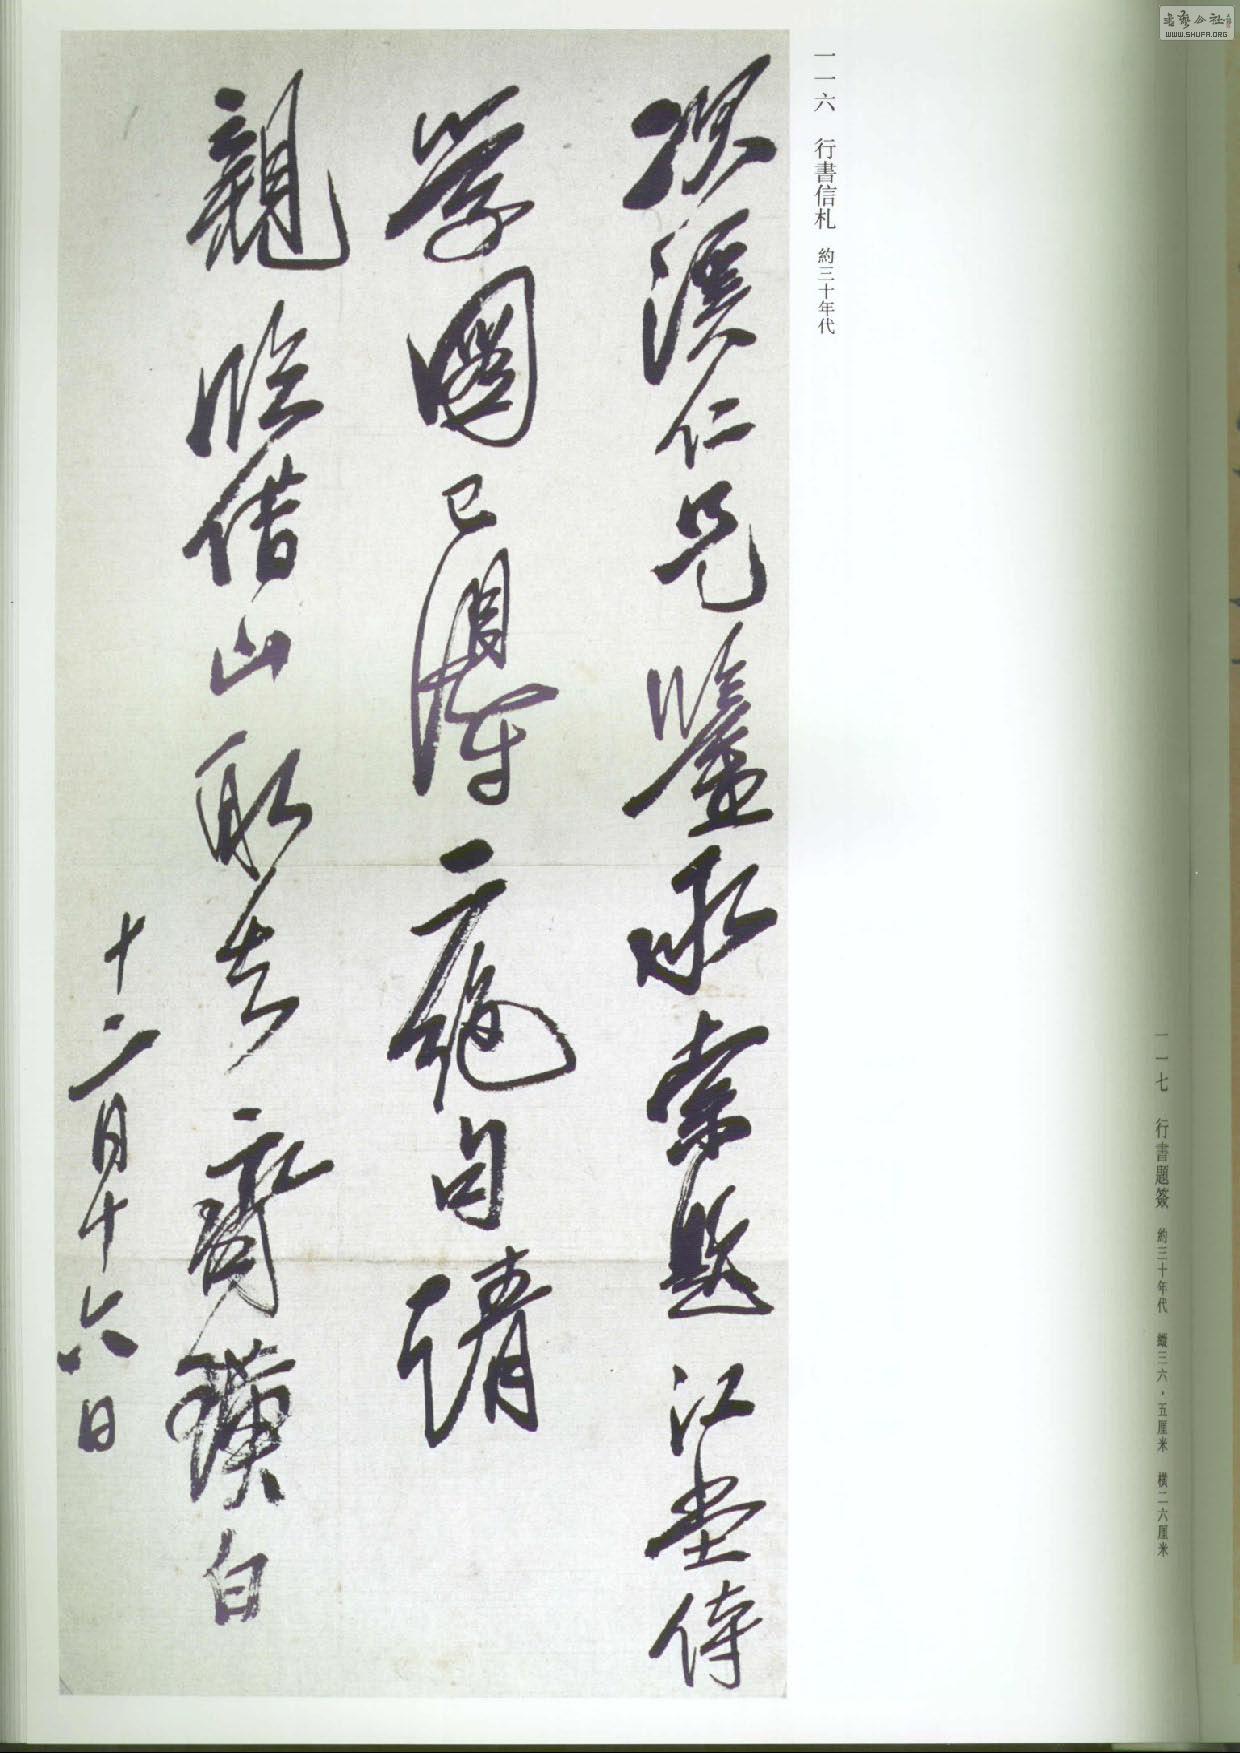 次溪仁兄鑒承索題江堂侍
學圖已得二絕句請
親臨借山取去齊璜白
十二月十六日
一一六　行書信札　約三十年代
一一七　行書題簽　約三十年代　縱三六·五厘米　橫二六厘米
WWW.SHUFA.ORG